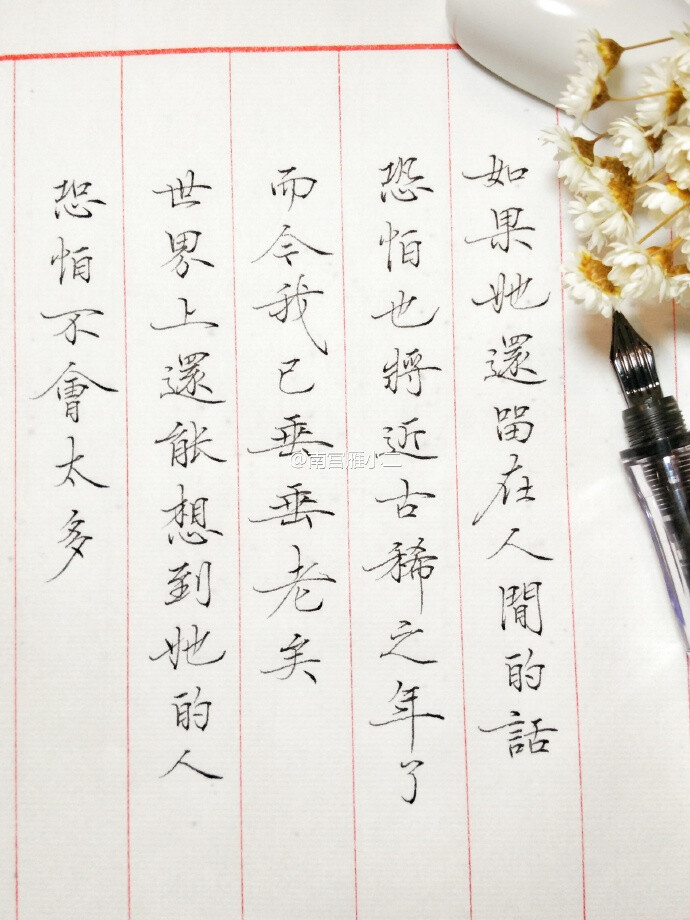 如果她還留在人間的話
恐怕也將近古稀之年了
而今我已垂垂老矣
世界上還能想到她的人
恐怕不會太多
@南宫雁小二